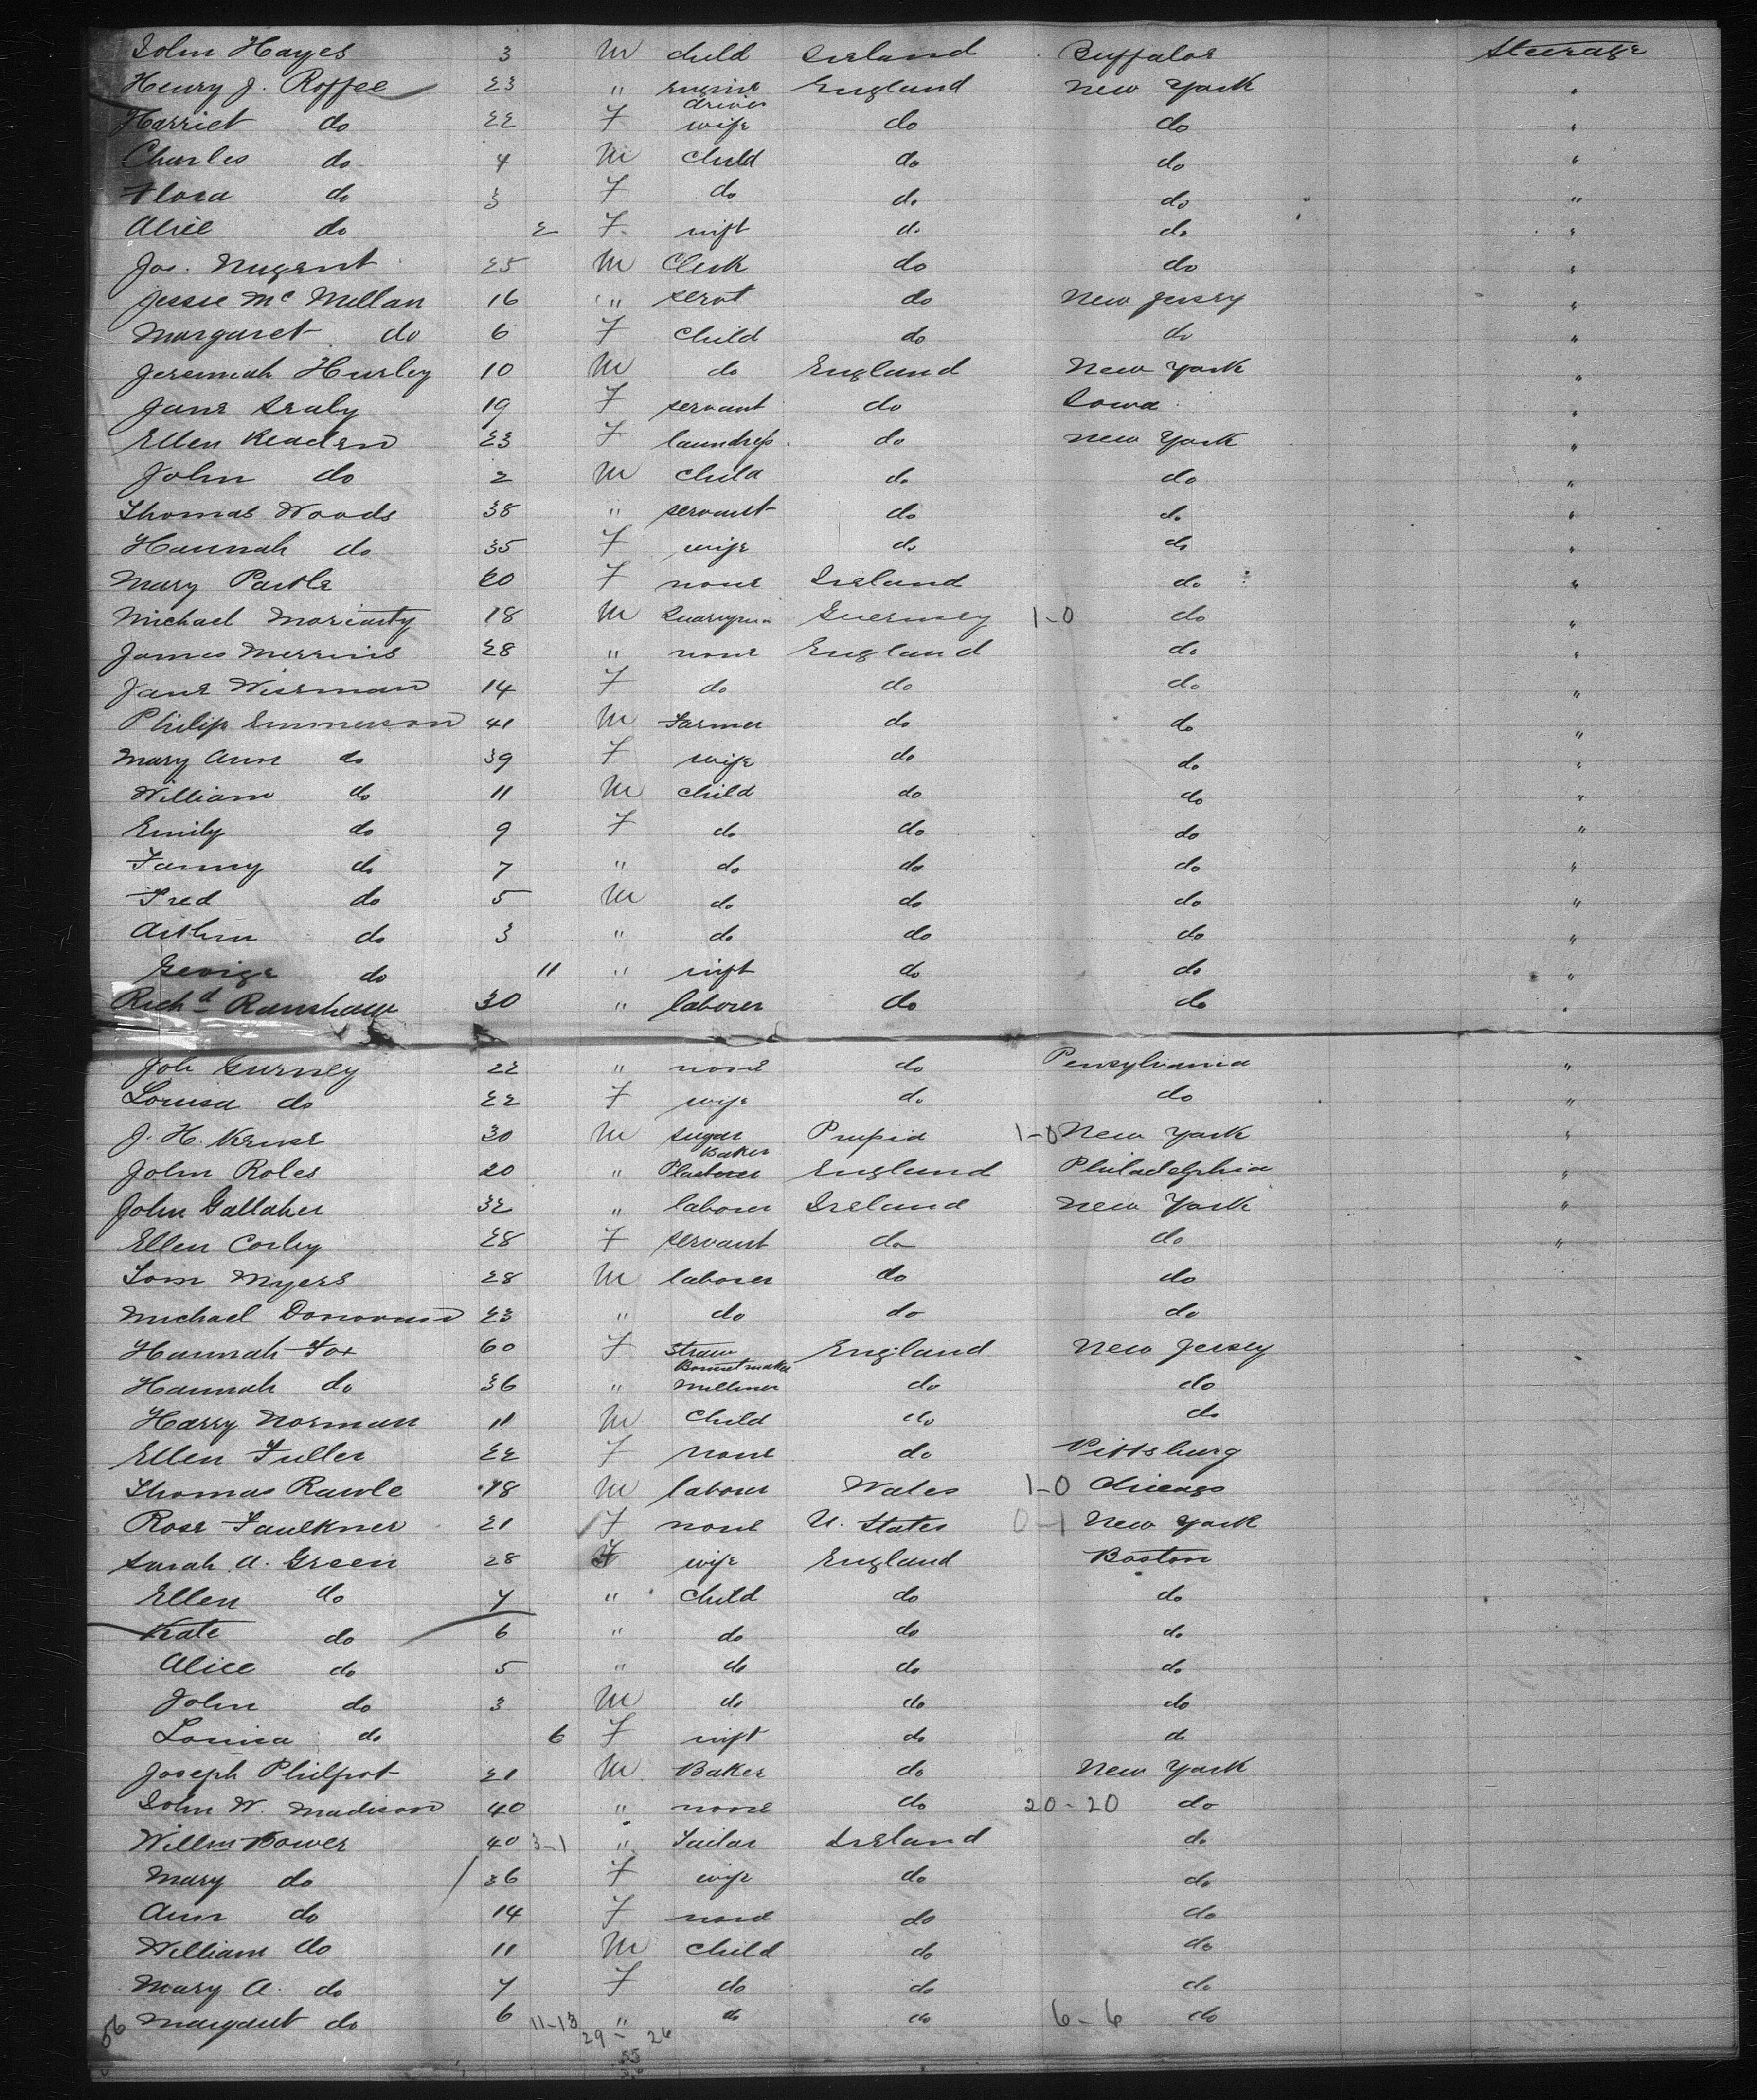 John Hayes 3 M child Ireland Buffalos Steerage
Henry J. Roffee 23 " Engine driver England New York "
Harriet do 22 F wife do do "
Charles do 4 M child do do "
Flora do 3 F do do do "
Alice do 2 F inft do do "
Jos. Nugent 25 M Clerk do do "
Jessie Mc Mellan 16 " servt do New Jersey "
Margaret do 6 F Child do do "
Jeremiah Hurley 10 M do England New York "
Jane Sealy 19 F servant do Iowa "
Ellen Readen 23 F laundress do New York "
John do 2 M child do do "
Thomas Woods 38 " servant do do "
Hannah do 35 F wife do do "
Mary 20 F none Ireland do "
Michael Moriarty 18 M Quarryman Guernsey 1-0 do "
James Merrins 28 " none England do "
Jane Wiseman 14 F do do do "
Philip Emmerson 41 M Farmer do do "
Mary Ann do 39 F wife do do "
William do 11 M child do do "
Emily do 9 F do do do "
Fanny do 7 " do do do "
Fred do 5 M do do do "
Arthur do 3 " do do do "
George do 11 " inft do do "
Richd Ranshaw 30 " laborer do do "
Job Gurney 22 " none do Pensylvania "
Lousia do 22 F wife do do "
J. H. Kruse 30 M sugar Baker Prussia 1-0 New York "
John Roles 20 " Plasterer England Philadelphia "
John Gallaher 32 " laborer Ireland New York "
Ellen Corley 28 F servant do do "
Tom Myers 28 M laborer do do
Michael Donovan 23 " do do do
Hannah Fox 60 F Straw Bonnet maker England New Jersey
Hannah do 36 " Milliner do do
Harry Norman 11 M Child do do
Ellen Fuller 22 F none do Pittsburg
Thomas Rawle 18 M laborer Wales 1-0 Chicago
Rose Faulkner 21 F none U. States 0-1 New York
Sarah A. Green 28 F wife England Boston
Ellen do 7 " Child do do
Kate do 6 " do do do
Alice do 5 " do do do
John do 3 M do do do
Louisa do 6 F inft do do
Joseph Philpot 21 M Baker do New York
John W. Madison 40 " none do 20-20 do
Willm Bower 40 3-1 " Tailor Ireland do
Mary do 36 F wife do do
Ann do 14 F none do do
William do 11 M child do do
Mary A. do 7 F do do do
Margaret do 6 11-13 " do do 6-6 do
56 29 - 26
55